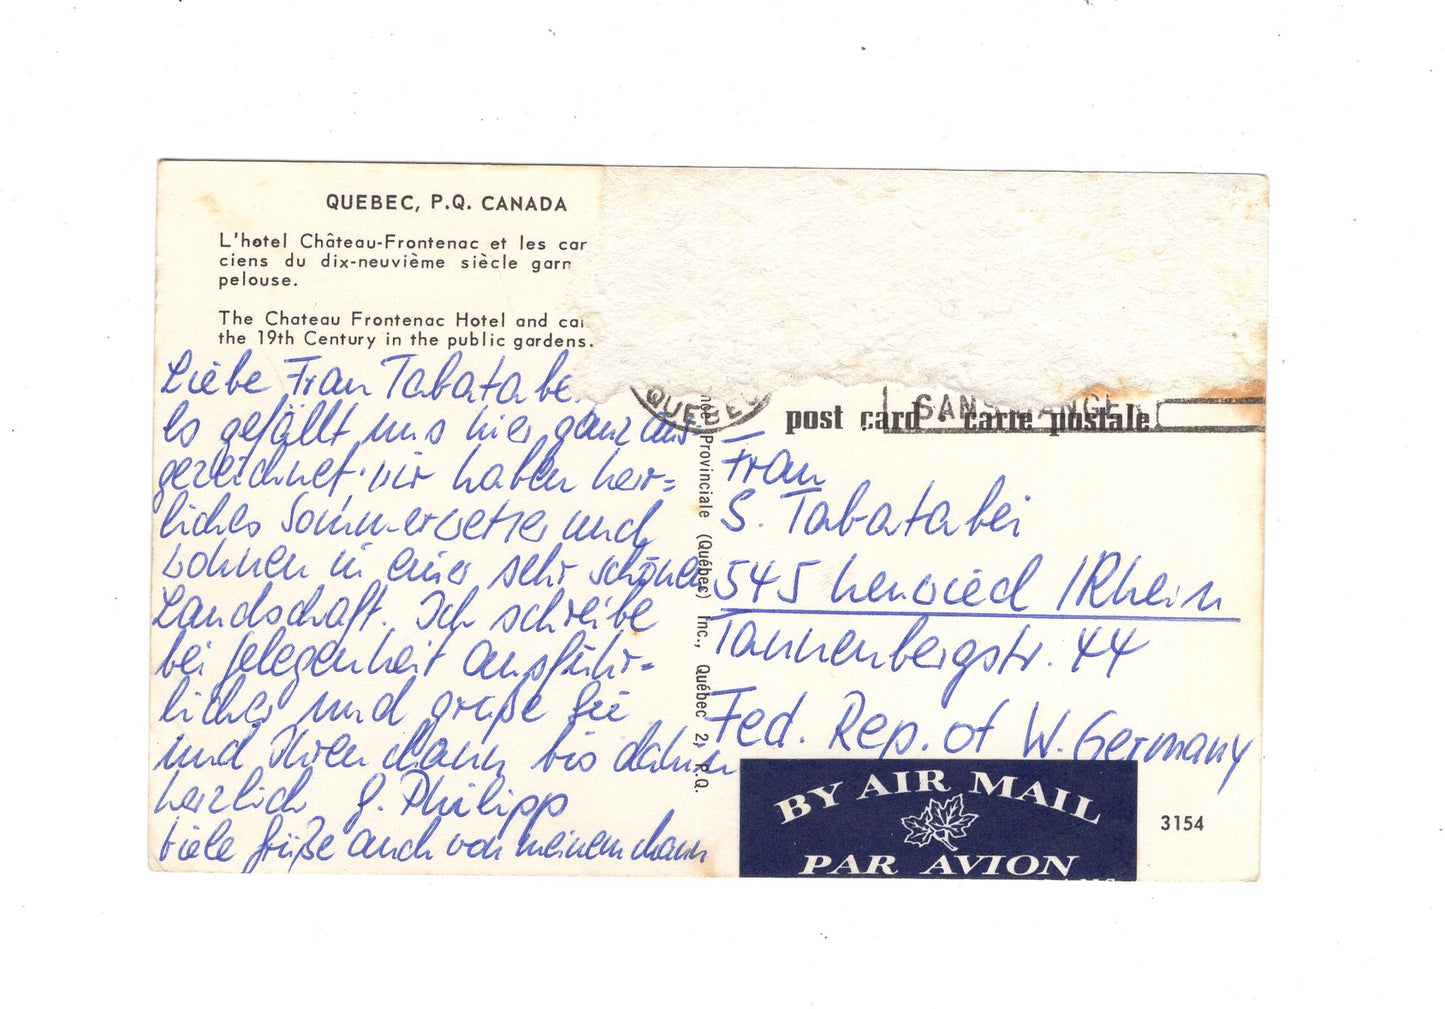 QUEBEC, P.Q. CANADA
L'hotel Château-Frontenac et les car
ciens du dix-neuvième siècle garn
pelouse.
The Chateau Frontenac Hotel and can
the 19th Century in the public gardens.
Liebe Frau Tabatabe
Es gefällt uns hier ganz aus-
gezeichnet. wir haben herr=
liches Sommerwetter und
wohnen in einer sehr schönen
Landschaft. Ich schreibe
bei Gelegenheit ausführ=
licher und grüße Sie
und Ihren Mann bis dahin
herzlich G. Philipp
Viele Grüße auch von meinem Mann
Provinciale (Québec) Inc., Québec 2, P.Q.
QUEBEC
SANS
post card / carte postale
Frau
S. Tabatabei
545 Neuwied / Rhein
Tannenbergstr. 44
Fed. Rep. of W. Germany
BY AIR MAIL
PAR AVION
3154